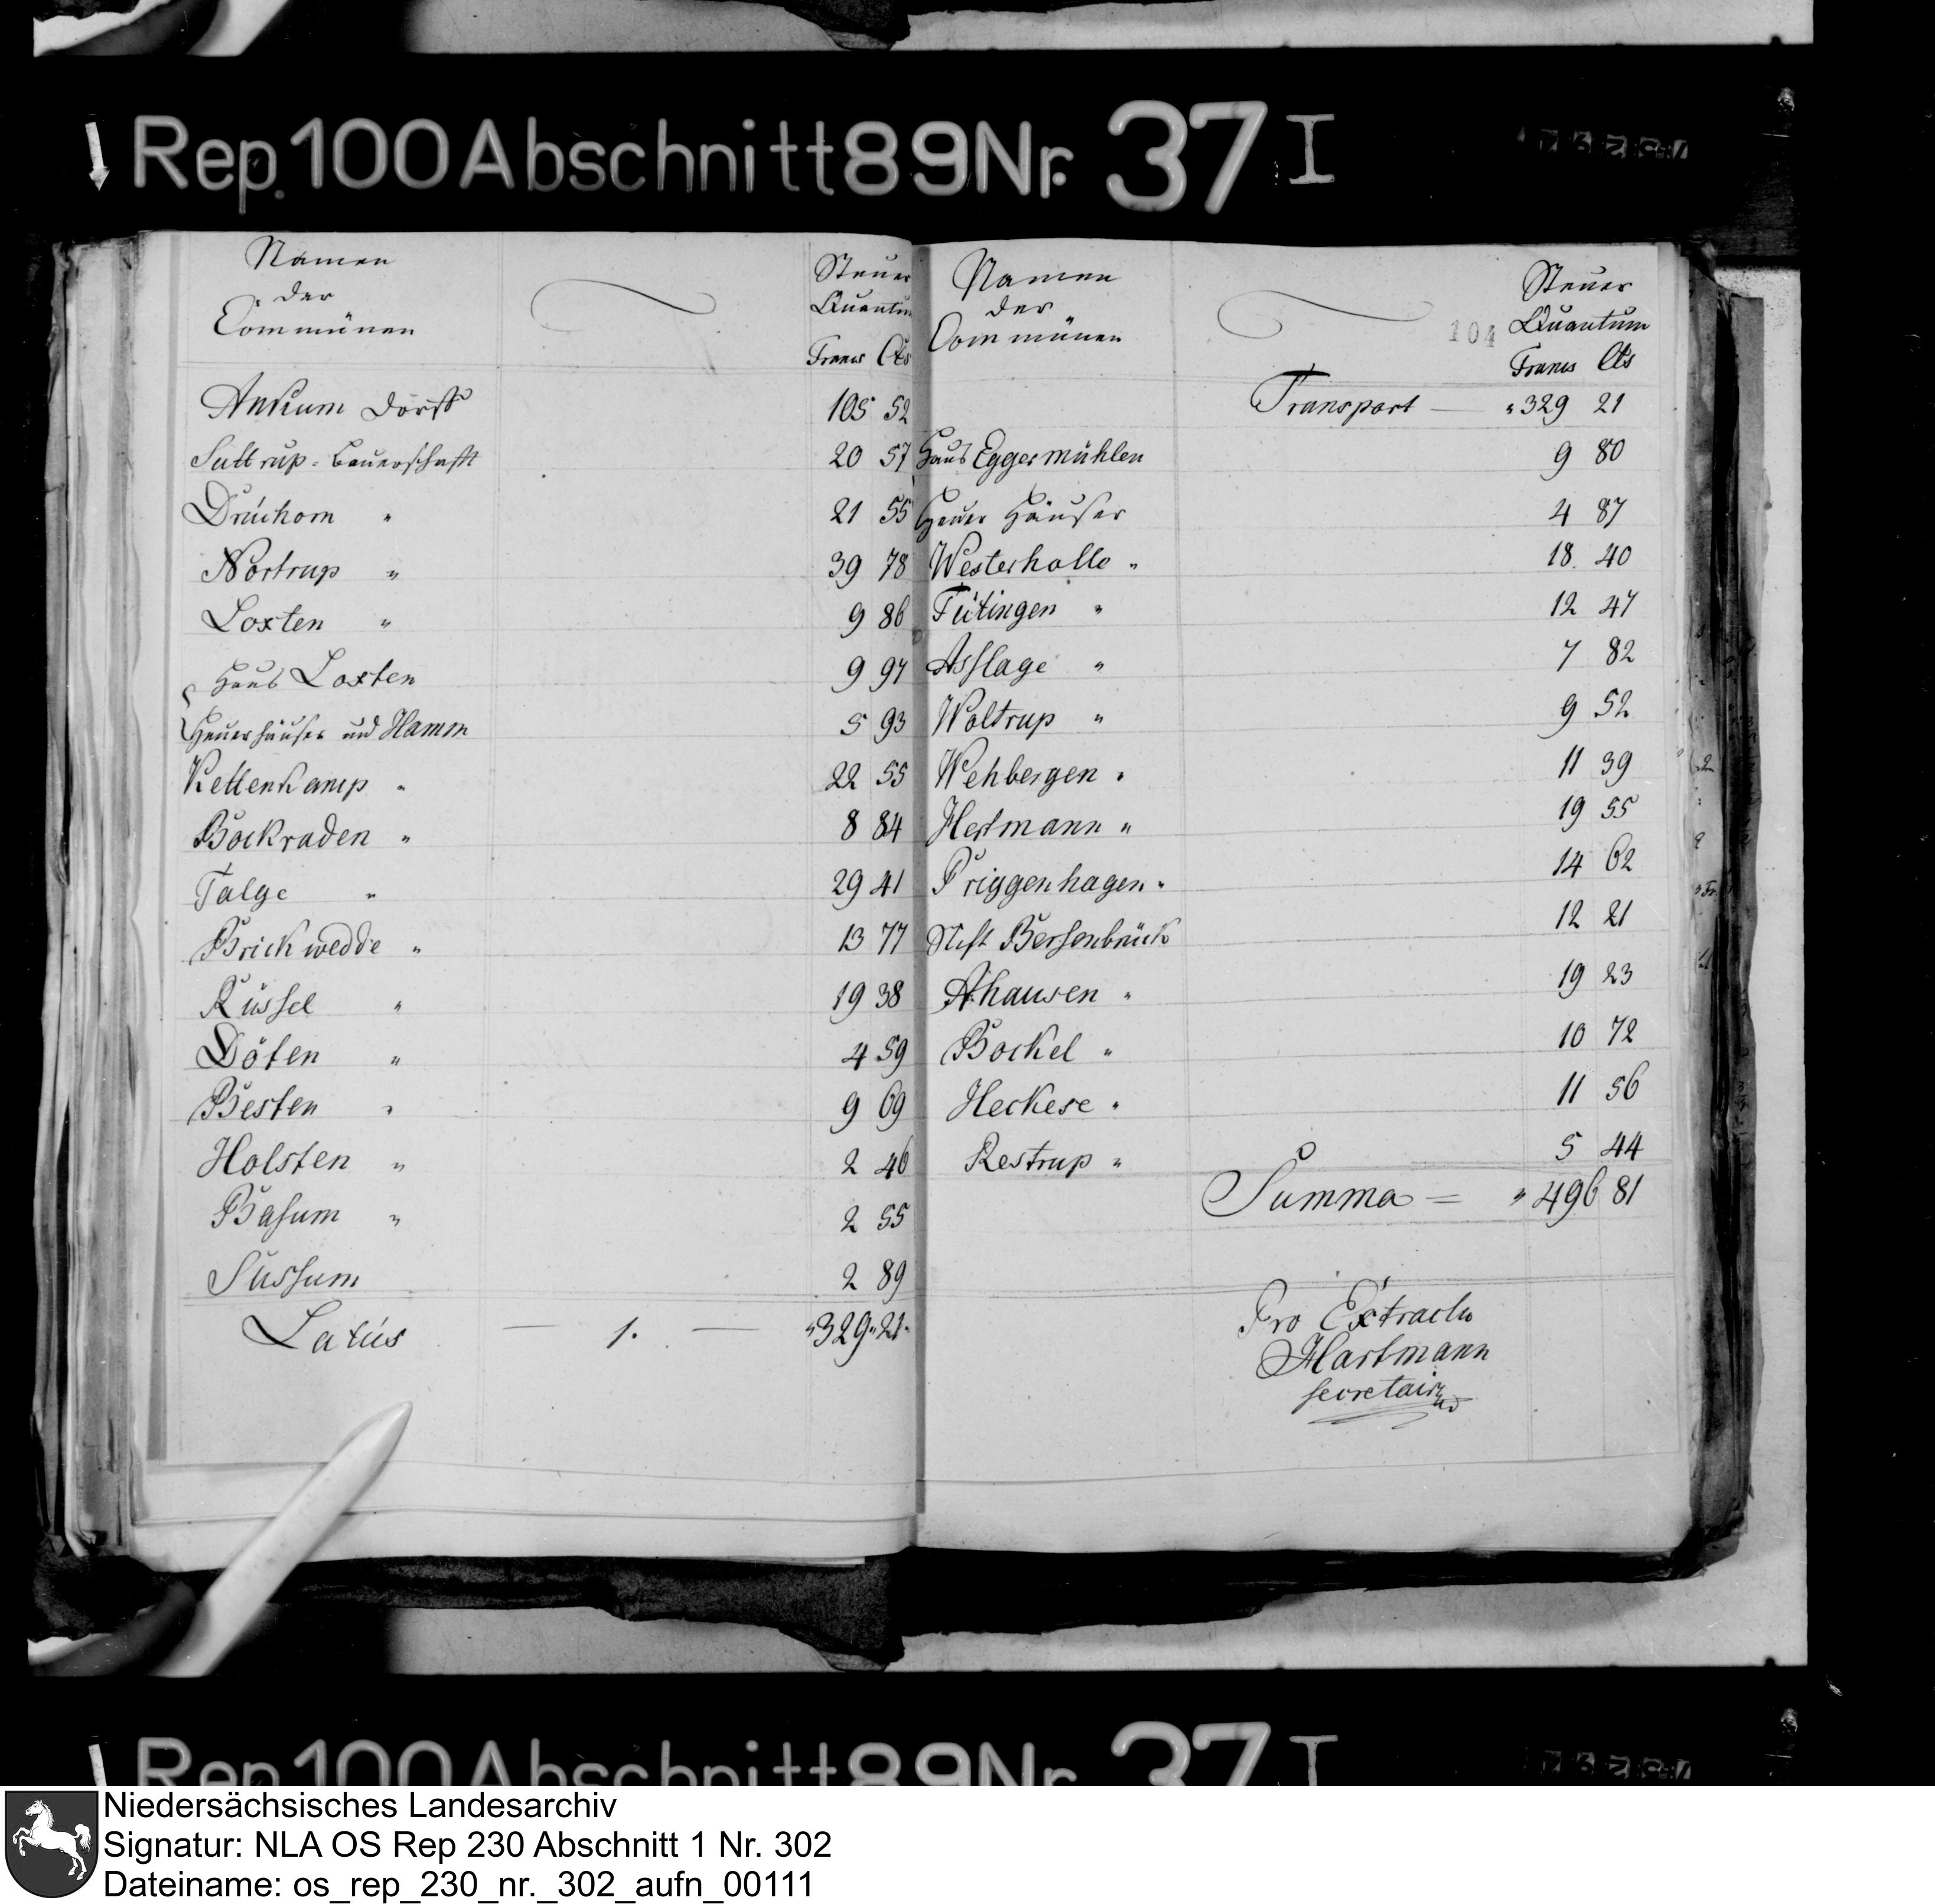 Rep. 100 Abschnitt 89 Nr. 37 I
Namen
der
Communen
Steuer
Quantum
Francs Cts
Ankum Dorff 105 52
Suttrup Bauerschafft 20 57
Druchorn " 21 55
Nortrup " 39 78
Loxten " 9 86
Haus Loxten 9 97
Heuerhäuser und Hamm 5 93
Kettenkamp " 22 55
Bockraden " 8 84
Talge " 29 41
Brickwedde " 13 77
Rüssel " 19 38
Döten " 4 59
Besten " 9 69
Holsten " 2 46
Basum " 2 55
Sussum 2 89
Latus — 1. — "329"21"
Namen
der
Communen
104
Steuer
Quantum
Francs Cts
Transport — "329 21
Haus Eggermühlen 9 80
Heuer Häuser 4 87
Westerholte " 18. 40
Tütingen " 12 47
Asslage " 7 82
Woltrup " 9 52
Wehbergen " 11 39
Hertmann " 19 55
Priggenhagen " 14 62
Stift Bersenbrück 12 21
Ahausen " 19 23
Bockel " 10 72
Heckese " 11 56
Restrup " 5 44
Summa = " 496 81
Pro Extractu
Hartmann
secretair
Rep. 100 Abschnitt 89 Nr. 37 I
Niedersächsisches Landesarchiv
Signatur: NLA OS Rep 230 Abschnitt 1 Nr. 302
Dateiname: os_rep_230_nr._302_aufn_00111